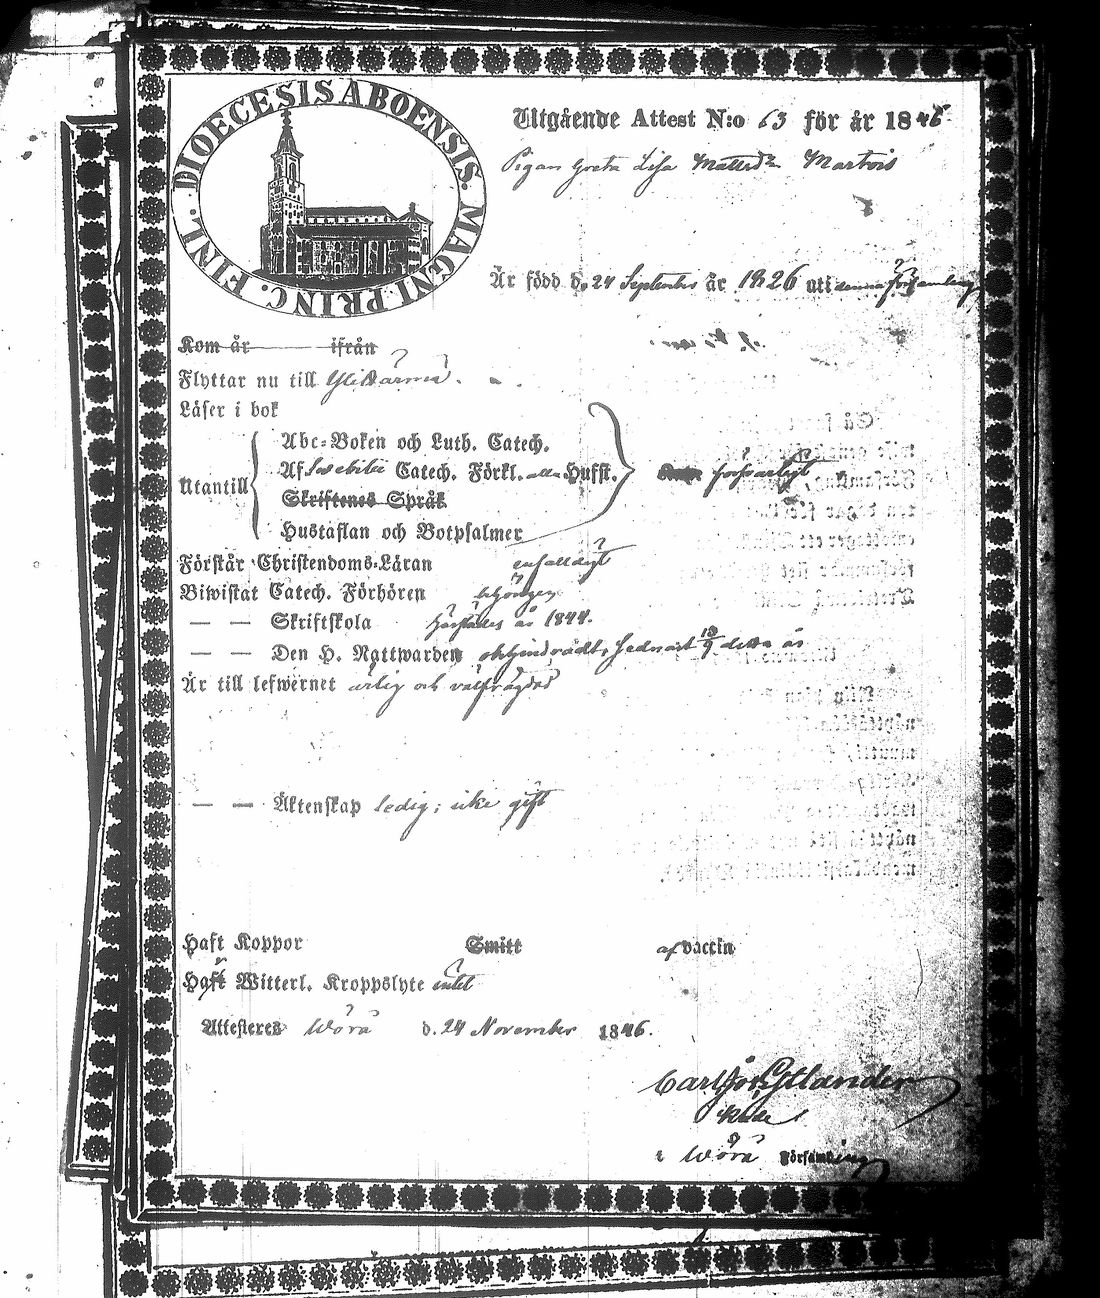 DIOECESIS ABOENSIS. MAGNI PRINC. FINL.
Utgående Attest N:o 63 för år 1846
Pigan Greta Lisa Mattsd:r Martois
Är född d. 24 September år 1826 uti denna församling
Kom år ifrån
Flyttar nu till Ylikärmä.
Läser i bok
Utantill
Abc-Boken och Luth. Catech.
Af Svebilii Catech. Förkl. Husst.
Skriftenes Språk
Hustaflan och Botpsalmer
försvarligt
Förstår Christendoms-Läran enfaldigt
Biwistat Catech. Förhören behörigen
— — Skriftskola härstädes år 1844.
— — Den H. Nattwarden obehindradt, sednast detta år
Är till lefwernet ärlig och välfrägdad
— — Äktenskap ledig; icke gift
Haft Koppor Smitt af vaccin
Haft Witterl. Kroppslyte intet
Attesteras Wörå d. 24 November 1846.
i Wörå Församling